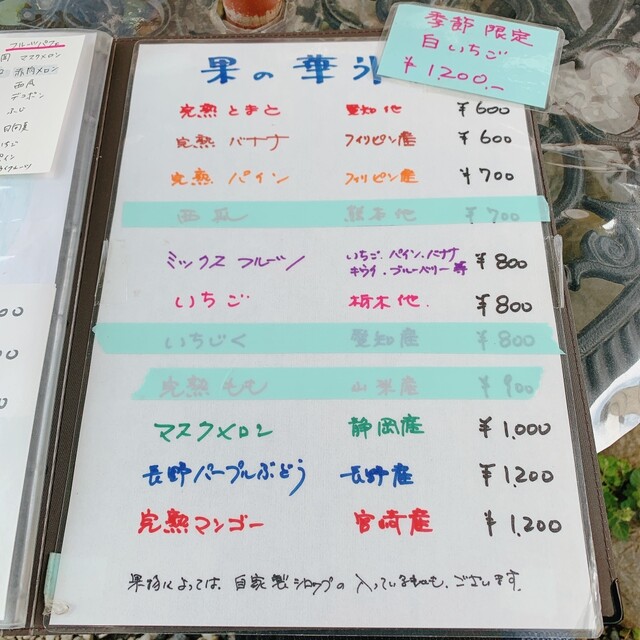 季節限定
白いちご
¥1200.-
フルーツパフェ
マスクメロン
赤肉メロン
西瓜
デコポン
果の華氷
完熟とまと 愛知他 ¥600
完熟 バナナ フィリピン産 ¥600
完熟 パイン フィリピン産 ¥700
西瓜 熊本他 ¥700
ミックスフルーツ いちご、パイン、バナナ
キウイ、ブルーベリー等 ¥800
いちご 栃木他. ¥800
いちじく 愛知産 ¥800
完熟もも 山梨産 ¥900
マスクメロン 静岡産 ¥1,000
長野パープルぶどう 長野産 ¥1,200
完熟マンゴー 宮崎産 ¥1,200
果物によっては、自家製シロップの入っているものも、ございます。